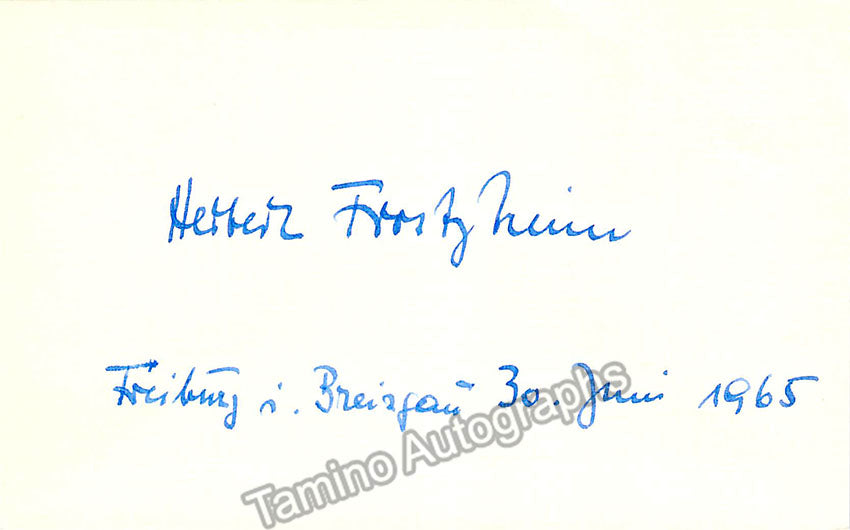 Herbert Froitzheim
Freiburg i. Breisgau 30. Juni 1965
Tamino Autographs